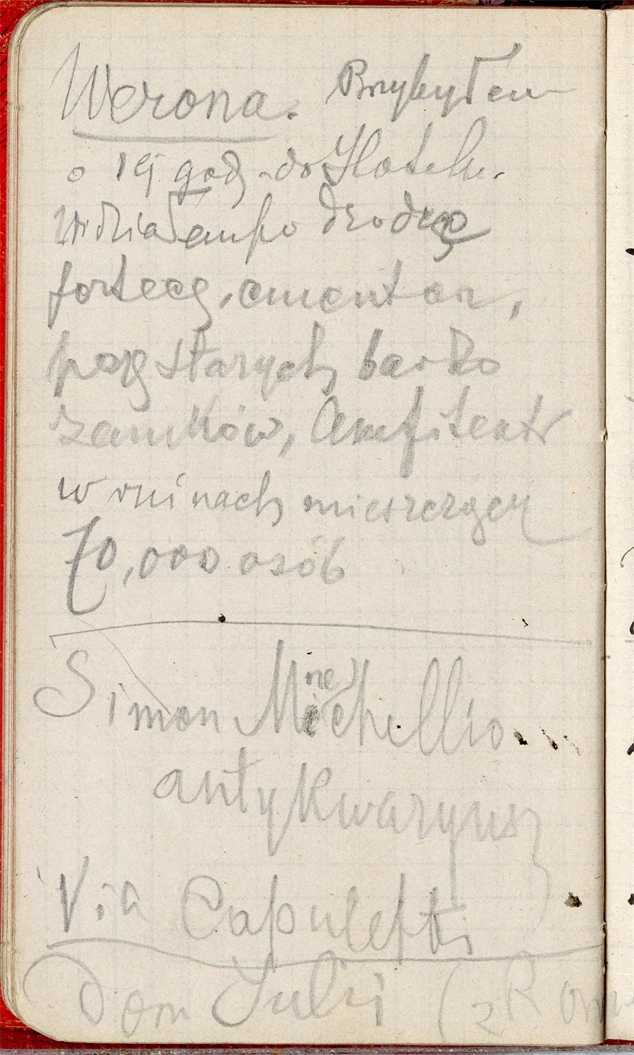 Werona. Przybyłem
o 19 godz. do Hotelu.
Widziałem po drodze
fortecę, cmentarz,
parę starych bardzo
zamków, Amfiteatr
w ruinach mieszczący
70,000 osób
Simon
antykwaryusz
Via Capuletti
Dom Julii (z Rom